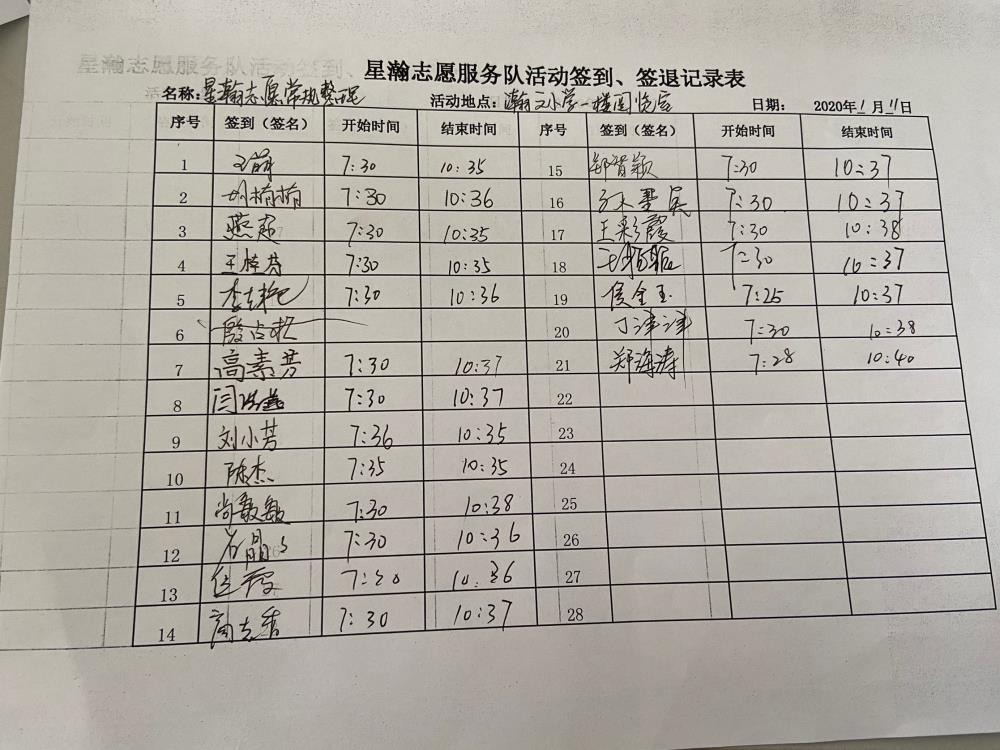 星瀚志愿服务队活动签到、签退记录表
名称：星瀚志愿常规整理 活动地点：瀚文小学一楼阅览室 日期： 2020年1月11日
序号 签到（签名） 开始时间 结束时间 序号 签到（签名） 开始时间 结束时间
1 7:30 10:35 15 郑智颖 7:30 10:37
2 胡楠楠 7:30 10:36 16 7:30 10:37
3 燕超 7:30 10:35 17 王彩霞 7:30 10:38
4 王桂芬 7:30 10:35 18 7:30 10:37
5 7:30 10:36 19 侯金玉 7:25 10:37
6 殷占 20 丁津津 7:30 10:38
7 高素芳 7:30 10:37 21 郑海涛 7:28 10:40
8 闫 7:30 10:37 22
9 刘小芳 7:36 10:35 23
10 陈杰 7:35 10:35 24
11 尚敏敏 7:30 10:38 25
12 石晶 7:30 10:36 26
13 10:36 27
14 7:30 10:37 28